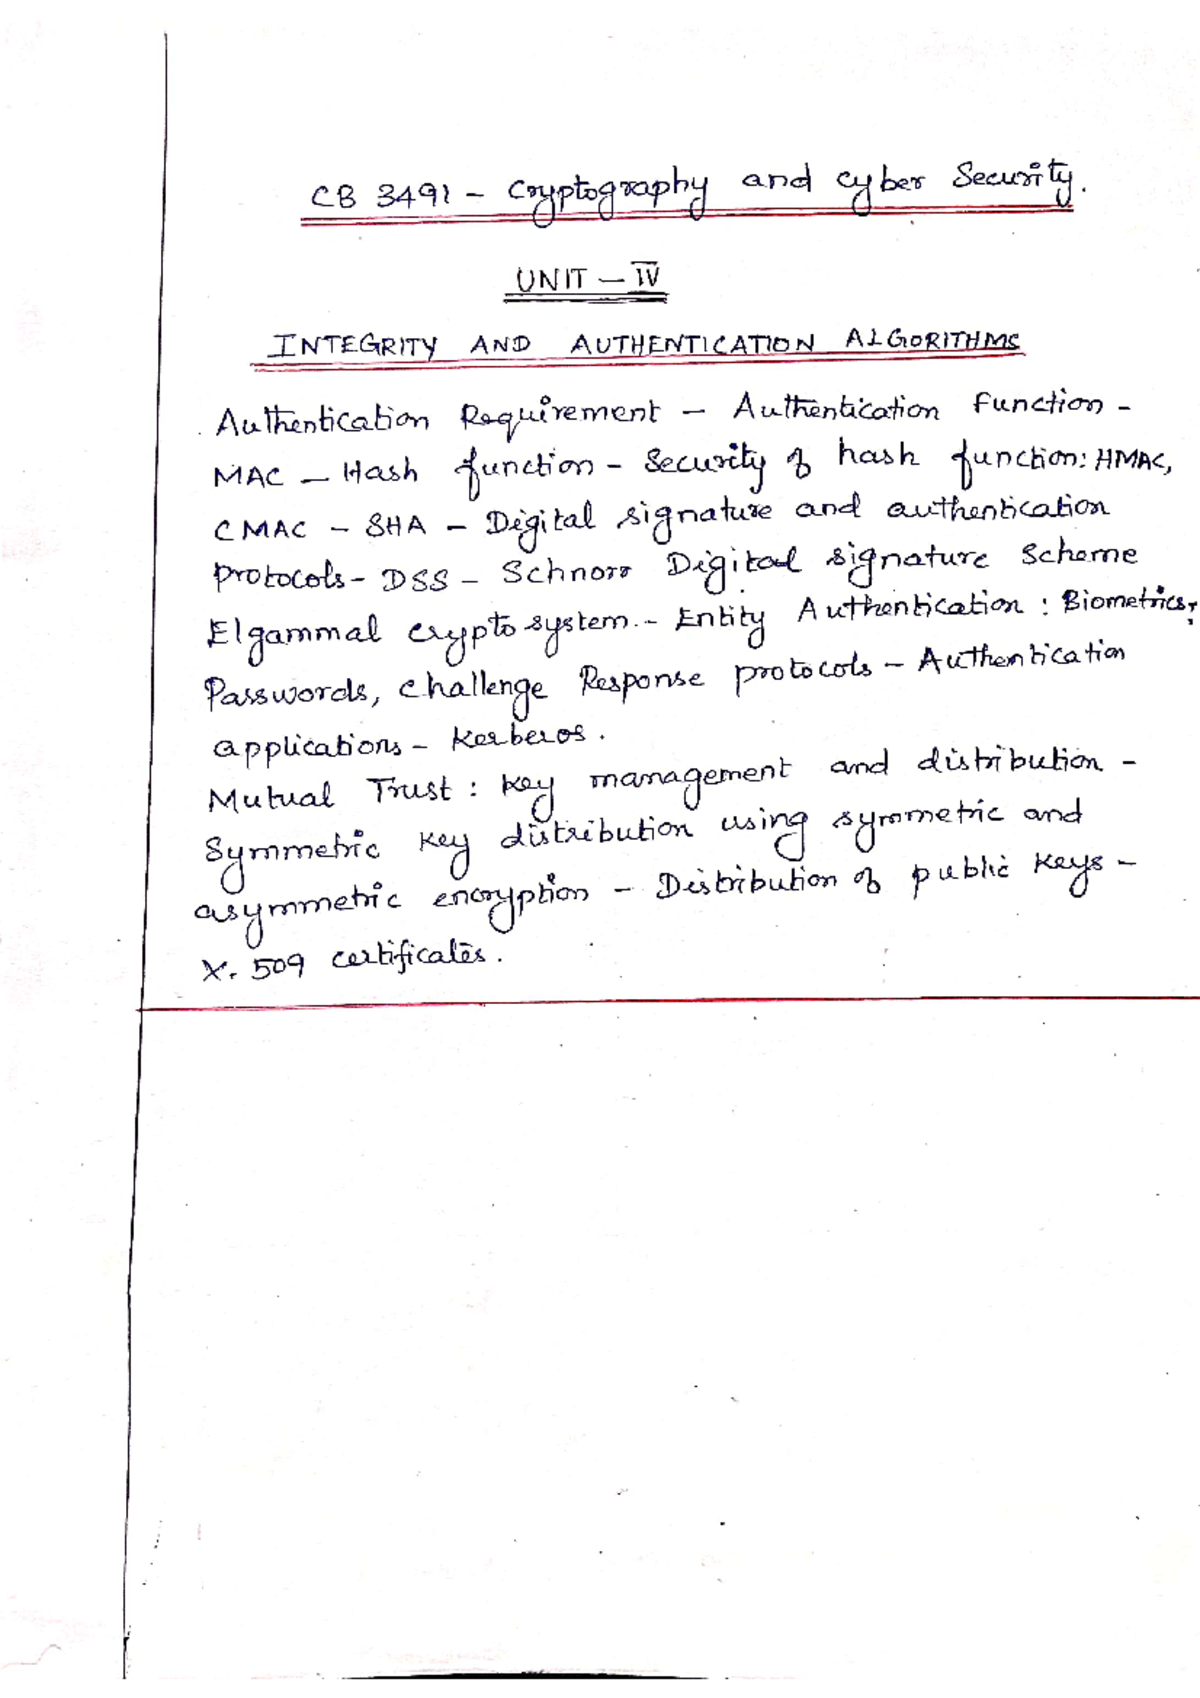 CB 3491 - Cryptography and Cyber Security.
UNIT - IV
INTEGRITY AND AUTHENTICATION ALGORITHMS
Authentication Requirement - Authentication Function -
MAC - Hash function - Security of hash function: HMAC,
CMAC - SHA - Digital signature and authentication
protocols - DSS - Schnorr Digital signature Scheme
Elgammal cryptosystem. - Entity Authentication : Biometrics,
Passwords, Challenge Response protocols - Authentication
applications - Kerberos.
Mutual Trust : Key management and distribution -
Symmetric key distribution using symmetric and
asymmetric encryption - Distribution of public keys -
X. 509 certificates.